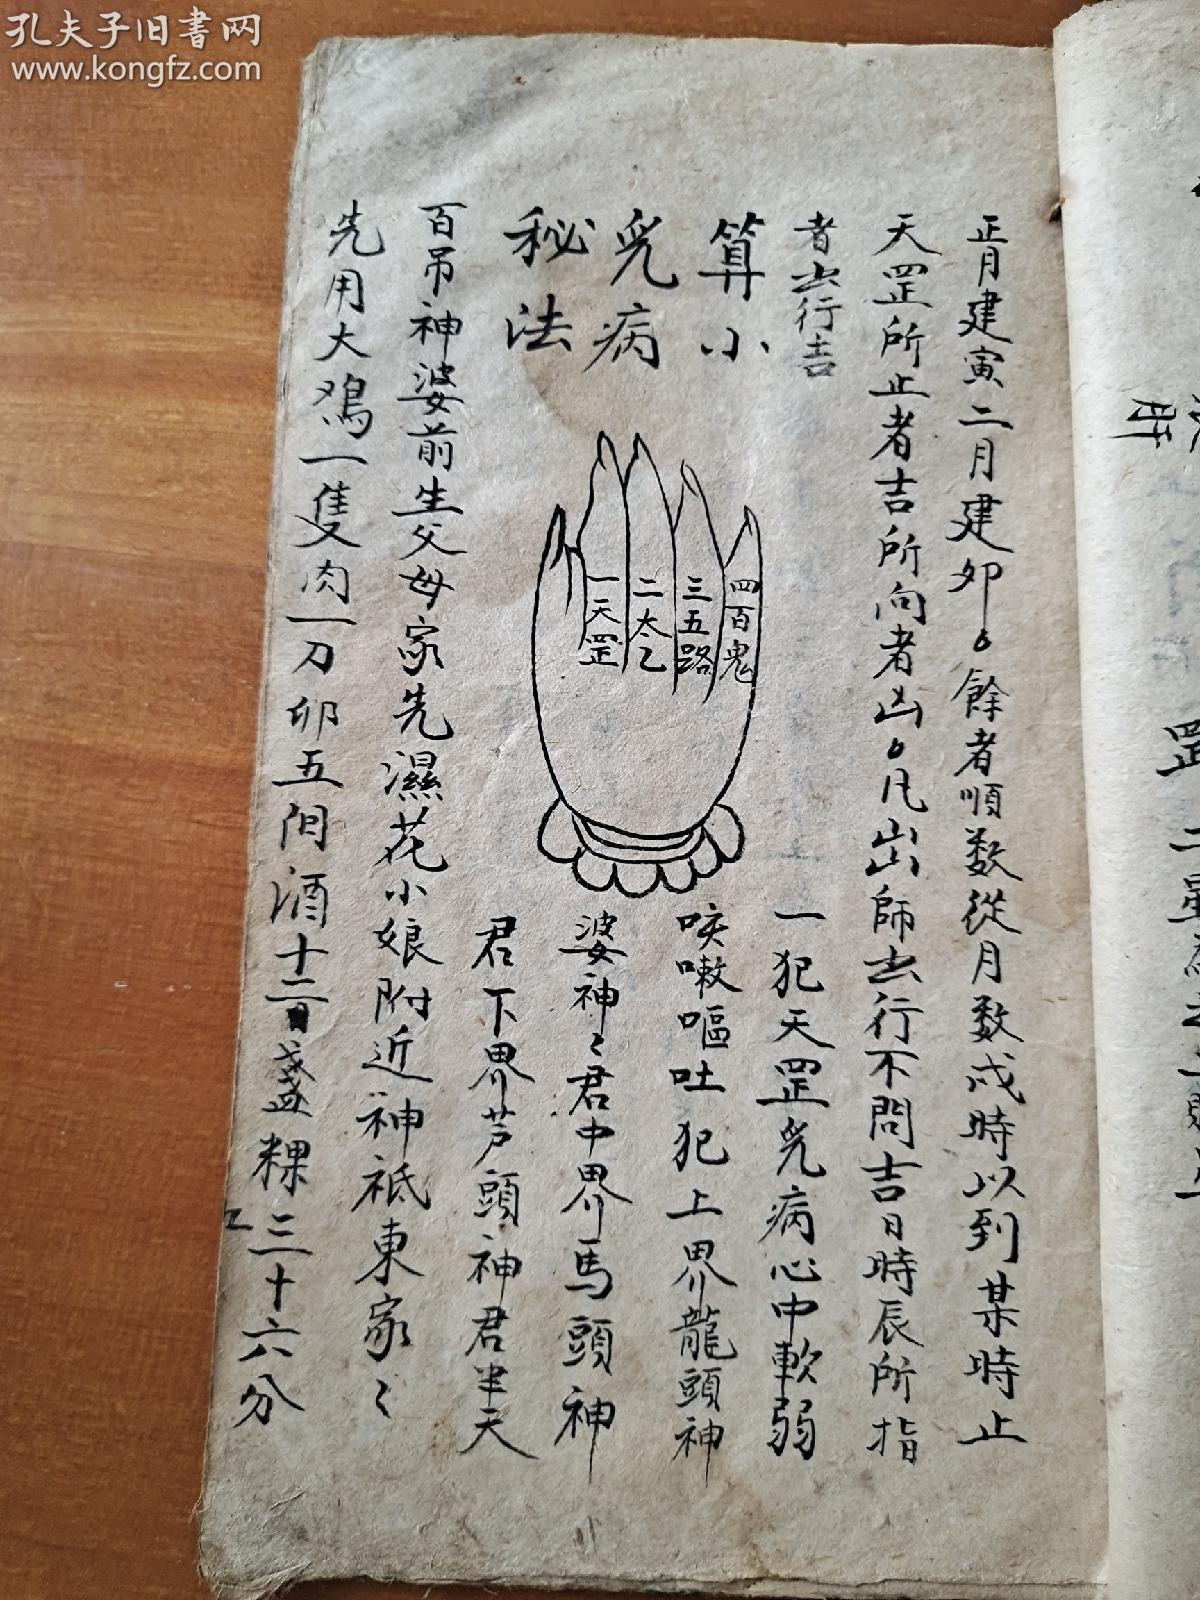 孔夫子旧書网
www.kongfz.com
正月建寅二月建卯餘者順数從月数戍時以到某時止
天罡所止者吉所向者凶凡出師出行不問吉日時辰所指
者出行吉
算小
兒病
秘法
一天罡
二太乙
三五路
四百鬼
一犯天罡兒病心中軟弱
咳嗽嘔吐犯上界龍頭神
婆神〻君中界馬頭神
君下界芦頭神君半天
百吊神婆前生父母家先濕花小娘附近神祇東家〻
先用大鴉一隻肉一刀卵五酒十二盞粿三十六分